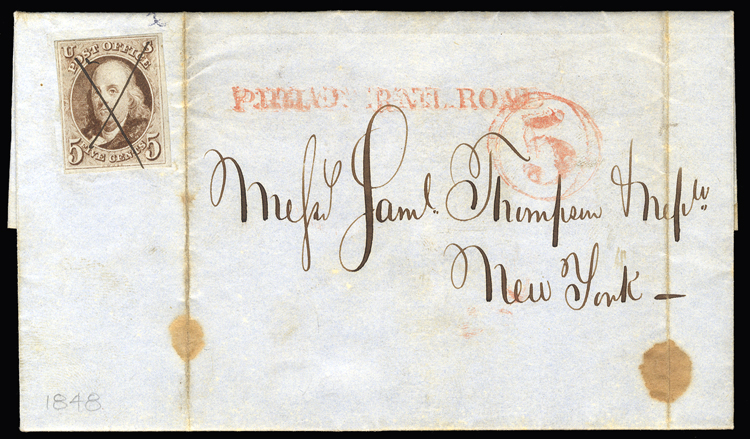 U S
POST OFFICE
5 FIVE CENTS 5
PHILADA RAILROAD
5
Messrs Saml. Thompson & Nephw.
New York –
1848